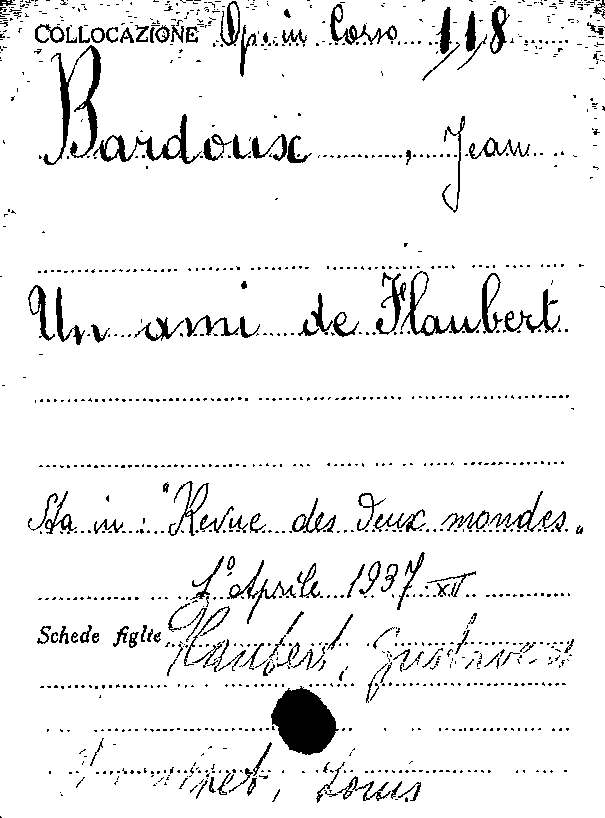 COLLOCAZIONE Op. in Corso 118
Bardoux, Jean
Un ami de Flaubert
Sta in: "Revue des deux mondes„
1° Aprile 1937 XII
Schede figlie Flaubert, Gustave
Louis